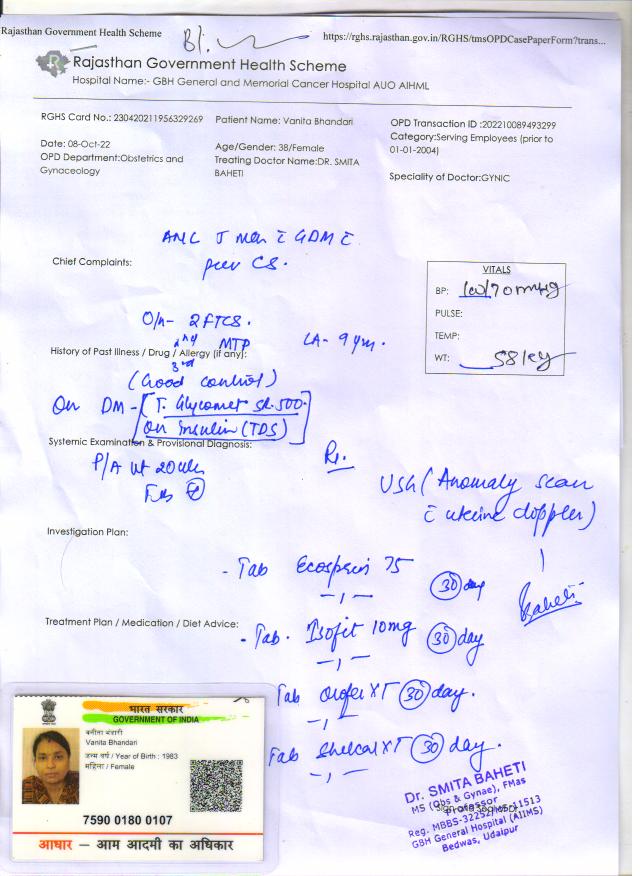 Rajasthan Government Health Scheme
https://rghs.rajasthan.gov.in/RGHS/tmsOPDCasePaperForm?trans...
Rajasthan Government Health Scheme
Hospital Name:- GBH General and Memorial Cancer Hospital AUO AIHML
RGHS Card No.: 230420211956329269 Patient Name: Vanita Bhandari OPD Transaction ID :202210089493299
Category:Serving Employees (prior to 01-01-2004)
Date: 08-Oct-22 Age/Gender: 38/Female
OPD Department:Obstetrics and Gynaceology Treating Doctor Name:DR. SMITA BAHETI
Speciality of Doctor:GYNIC
ANC GDM
Chief Complaints: prev CS.
VITALS
BP: 100/70 mmHg
PULSE:
TEMP:
WT: 58 kg
2 FTCS.
MTP LA- 9 yrs.
History of Past Illness / Drug / Allergy (if any):
(Good control)
On DM - T. Glycomet SR 500
On Insulin (TDS)
Systemic Examination & Provisional Diagnosis:
P/A Ut 20 wks
Rx.
USG (Anomaly scan
c uterine doppler)
Investigation Plan:
- Tab Ecosprin 75 30 day
Baheti
Treatment Plan / Medication / Diet Advice:
- Tab. Isofit 10mg 30 day
Tab Orofer XT 30 day.
Tab Shelcal XT 30 day.
भारत सरकार
GOVERNMENT OF INDIA
वनीता भंडारी
Vanita Bhandari
जन्म वर्ष / Year of Birth : 1983
महिला / Female
7590 0180 0107
आधार – आम आदमी का अधिकार
Dr. SMITA BAHETI
MS (Obs & Gynae), FMas
Professor
Reg. MBBS-32252/MS-11513
GBH General Hospital (AIIMS)
Bedwas, Udaipur